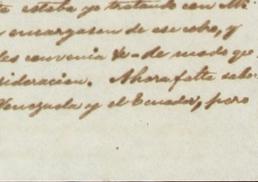 estaba yo tratando con Mi
encargasen de ese cobro, y
les convenia &– de modo que
sideracion. Ahora falta sabe
Venezuela y el Ecuador, pero